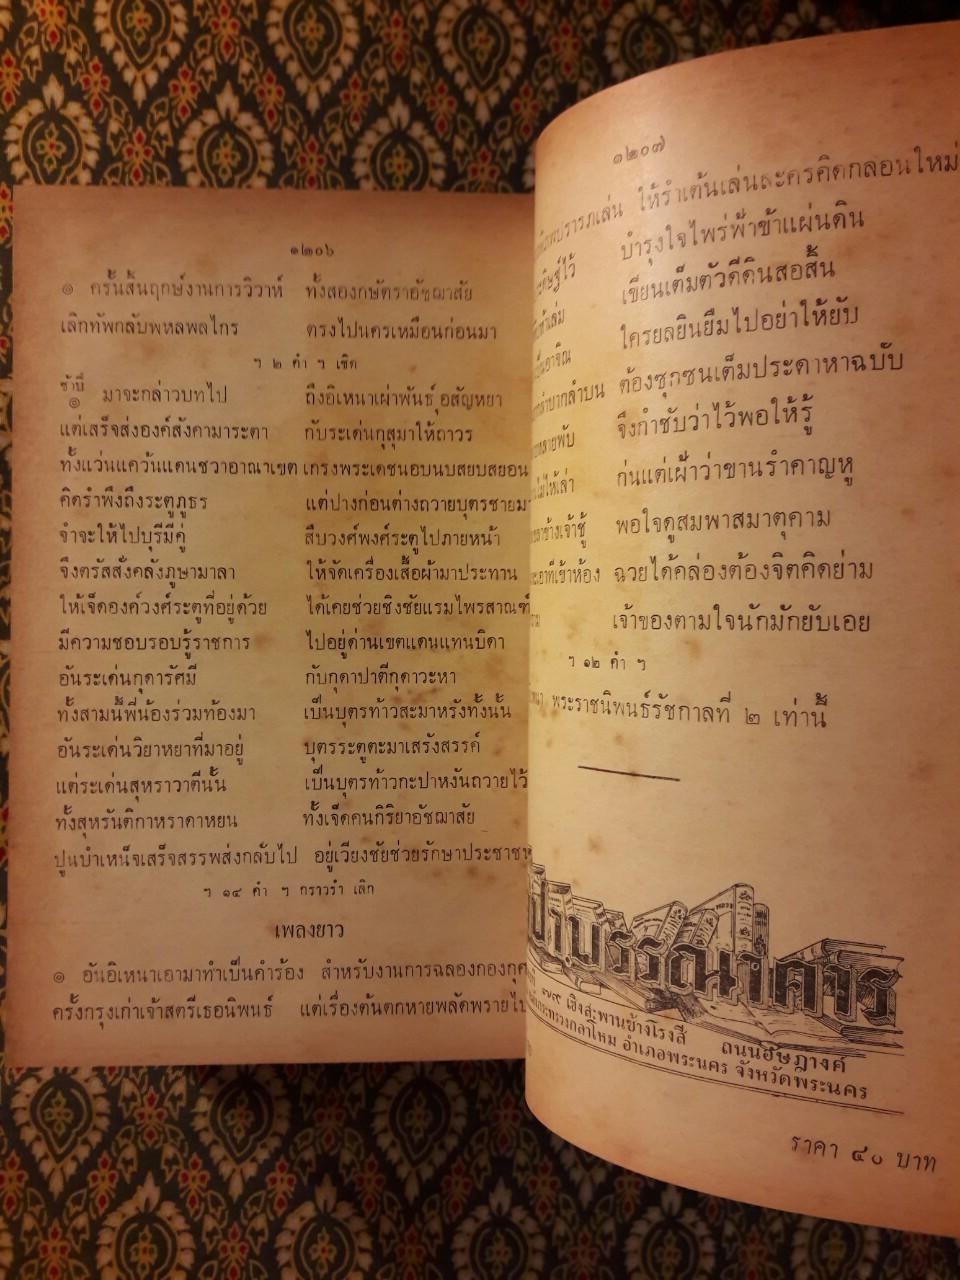 ๑๒๐๖
๏ ครั้นสิ้นฤกษ์งานการวิวาห์ ทั้งสองกษัตราอัชฌาสัย
เลิกทัพกลับพหลพลไกร ตรงไปนครเหมือนก่อนมา
ฯ ๒ คำ ฯ เชิด
ช้าปี่
๏ มาจะกล่าวบทไป ถึงอิเหนาเผ่าพันธุ์อสัญหยา
แต่เสร็จส่งองค์สังคามาระตา กับระเด่นกุสุมาให้ถาวร
ทั้งแว่นแคว้นแดนชวาอาณาเขต เกรงพระเดชนอบนบสยบสยอน
คิดรำพึงถึงระตูภูธร แต่ปางก่อนต่างถวายบุตรชายมา
จำจะให้ไปบุรีมีคู่ สืบวงศ์พงศ์ระตูไปภายหน้า
จึงตรัสสั่งคลังภูษามาลา ให้จัดเครื่องเสื้อผ้ามาประทาน
ให้เจ็ดองค์วงศ์ระตูที่อยู่ด้วย ได้เคยช่วยชิงชัยแรมไพรสาณฑ์
มีความชอบรอบรู้ราชการ ไปอยู่ด่านเขตแดนแทนบิดา
อันระเด่นกุดารัศมี กับกุดาปาตีกุดาวะหา
ทั้งสามนี้พี่น้องร่วมท้องมา เป็นบุตรท้าวสะมาหรังทั้งนั้น
อันระเด่นวิยาหยาที่มาอยู่ บุตรระตูตะมาเสรังสรรค์
แต่ระเด่นสุหราวาตีนั้น เป็นบุตรท้าวกะปาหงันถวายไว้
ทั้งสุหรันติกาหราดาหยน ทั้งเจ็ดคนกิริยาอัชฌาสัย
ปูนบำเหน็จเสร็จสรรพส่งกลับไป อยู่เวียงชัยช่วยรักษาประชาชน
ฯ ๑๔ คำ ฯ กราวรำ เลิก
เพลงยาว
๏ อันอิเหนาเอามาทำเป็นคำร้อง สำหรับงานการฉลองกองกุศ
ครั้งกรุงเก่าเจ้าสตรีเธอนิพนธ์ แต่เรื่องต้นตกหายพลัดพรายไป
๑๒๐๗
ปรารภเล่น ให้รำเต้นเล่นละครคิดกลอนใหม่
ประดิษฐ์ไว้ บำรุงใจไพร่ฟ้าข้าแผ่นดิน
เล่ม เขียนเต็มตัวดีดินสอสิ้น
ใครยลยินยืมไปอย่าให้ยับ
ลำบากลำบน ต้องซุกซนเต็มประดาหาฉบับ
พับ จึงกำชับว่าไว้พอให้รู้
ไม่ให้เล่า ก่นแต่เฝ้าว่าขานรำคาญหู
ข้างเจ้าชู้ พอใจดูสมพาสมาตุคาม
เอาที่เข้าห้อง ฉวยได้คล่องต้องจิตคิดย่าม
เจ้าของตามใจนักมักยับเอย
ฯ ๑๒ คำ ฯ
พระราชนิพนธ์รัชกาลที่ ๒ เท่านี้
บรรณาคาร
๗๙ เชิงสะพานข้างโรงสี ถนนอัษฎางค์
กระทรวงกลาโหม อำเภอพระนคร จังหวัดพระนคร
ราคา ๔๐ บาท